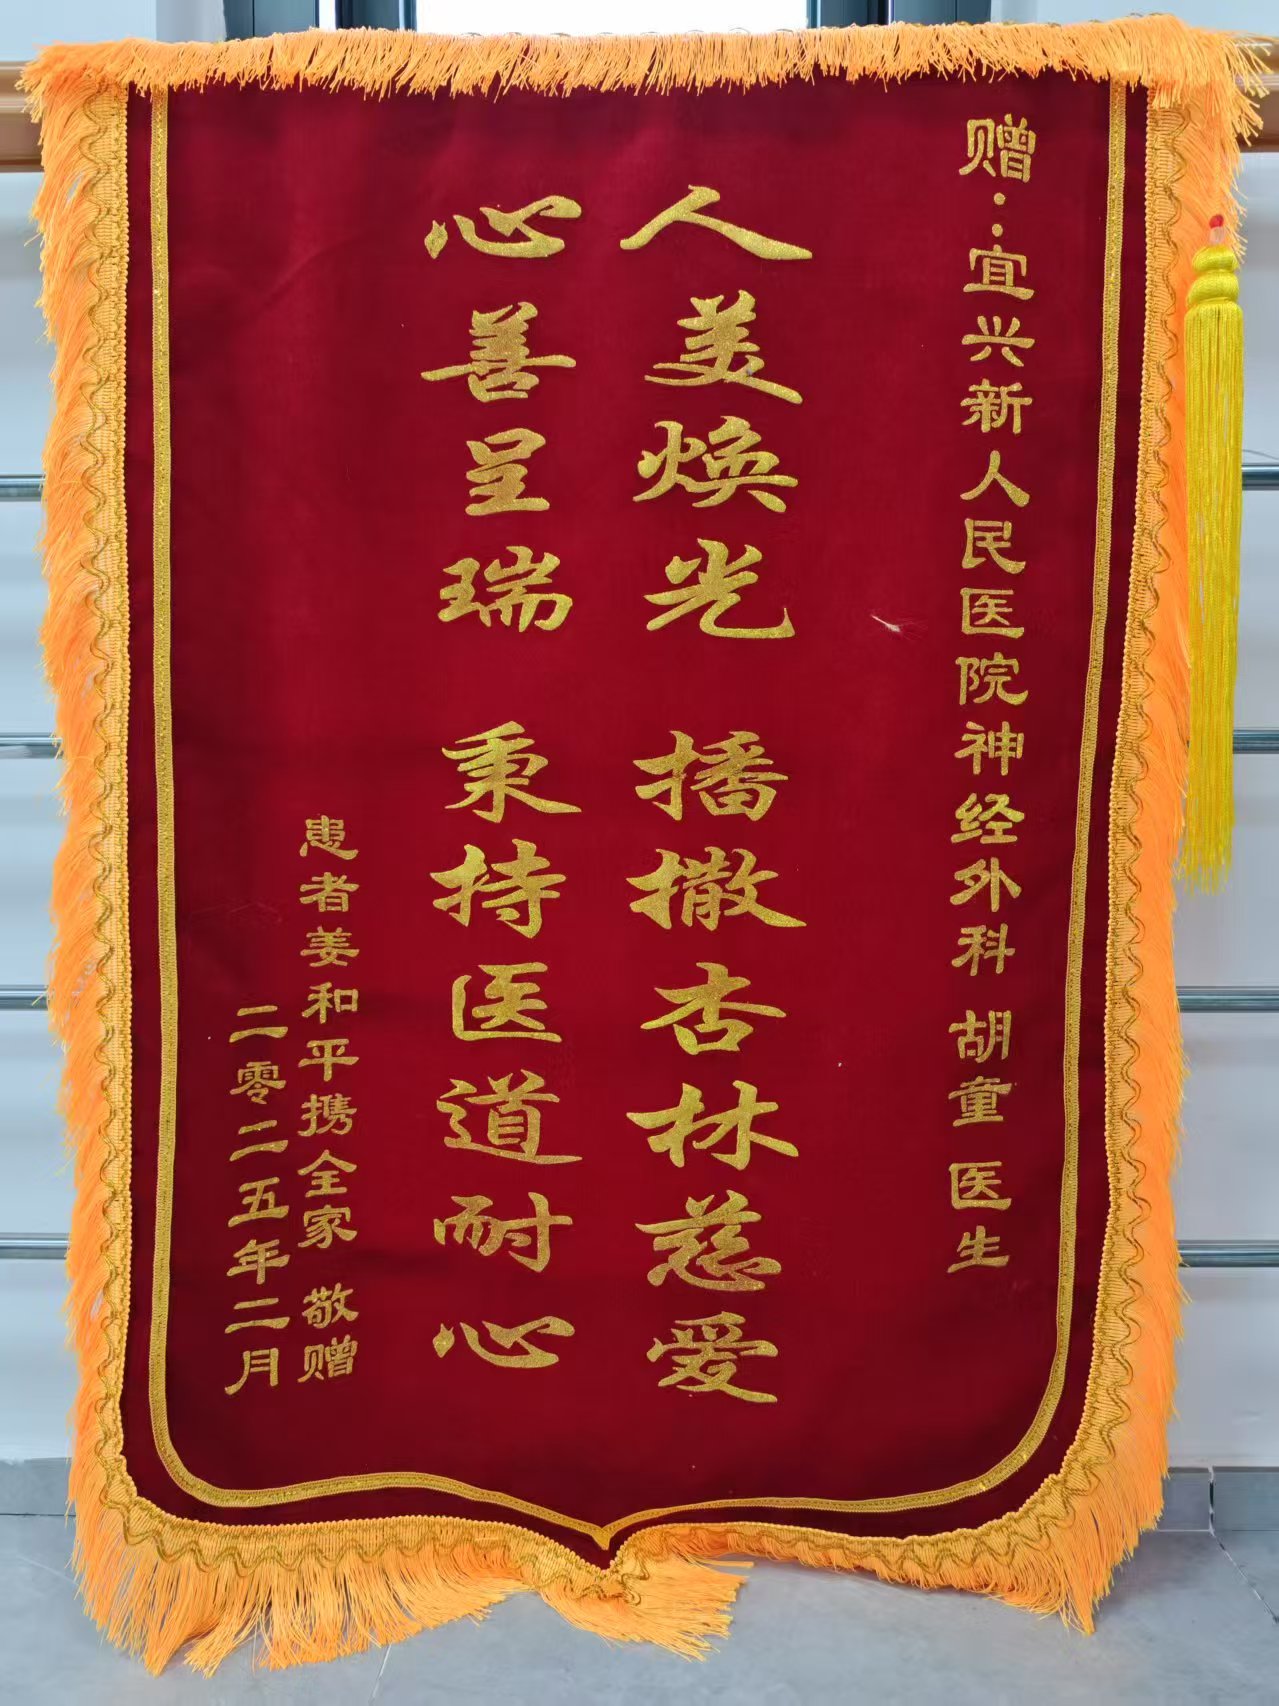 赠：宜兴新人民医院神经外科 胡童 医生
人美焕光 播撒杏林慈爱
心善呈瑞 秉持医道耐心
患者姜和平携全家 敬赠
二零二五年二月